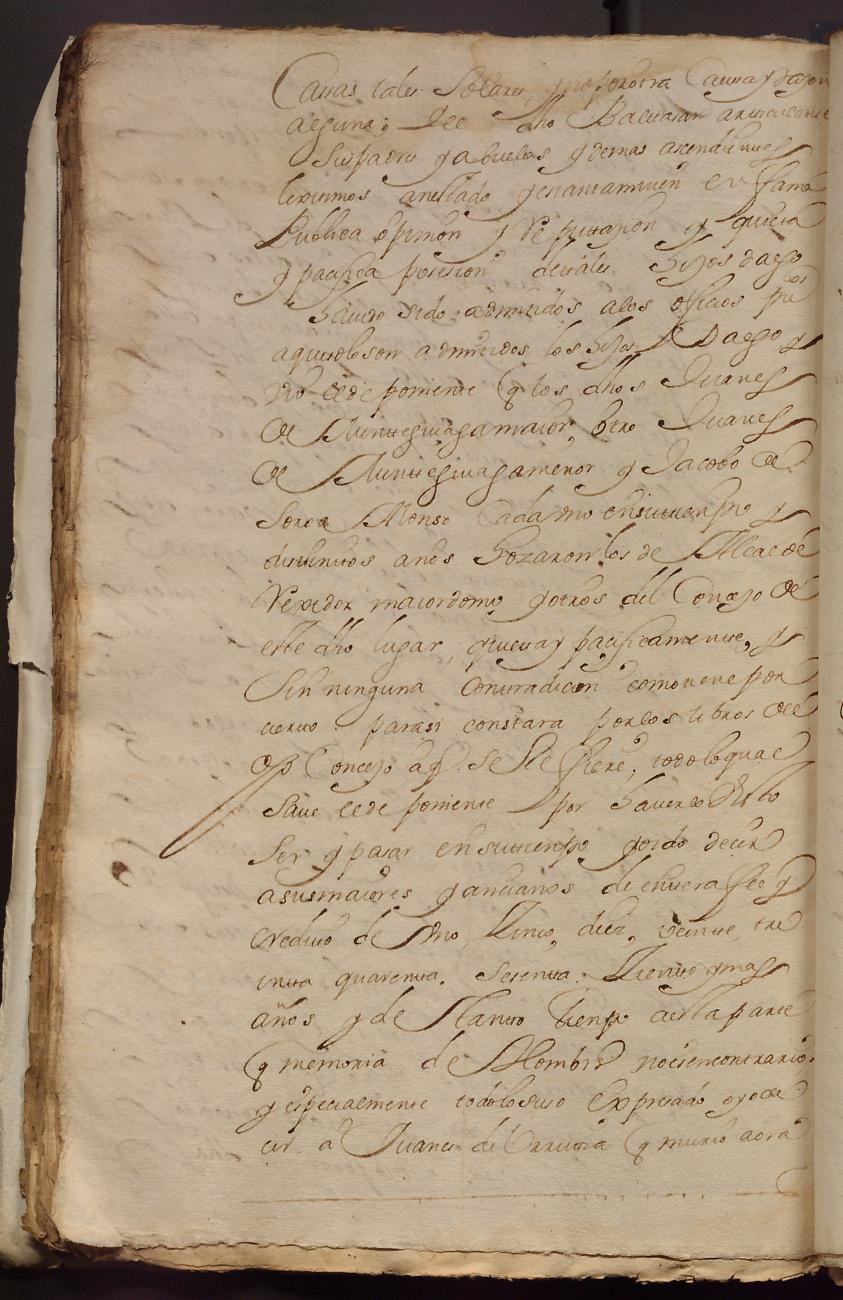 Casas tales Solares, y no por otra Causa y Razon
alguna; y el dho Baltasar
Sus padres y abuelos y demas ascendientes
lexitimos an estado y estan tamvien en fama
Publica opinion y Reputazion y quieta
y pacifica posesion de tales hijos dalgo
haviendo sido admitidos a los oficios
a que solo son admitidos los hijos Dalgo y
vio el deponiente q los dhos Juanes
de Munteguiaga maior, otro Juanes
de Munteguiaga menor y Jacobo de
Alonso Cada vno en su tiempo y
distintos años Gozaron los de Alcalde
Rexidor maiordomo y otros del Conzejo de
este dho lugar, quieta y pacificamente, y
Sin ninguna Contradicion como tiene por
cierto parasi constara por los libros del
dho Concejo a q. se Refiere, todo lo qual
Save el deponiente por haverlo visto
Ser y pasar en su tiempo y oido decir
a sus maiores y ancianos de entera fee y
credito de Vno, Zinco, diez, veinte, tre
inta quarenta. Sesenta. Ziento y mas
años y de tanto tiempo aesta parte
q memoria de Hombres no es en contrario.
y especialmente todo lo suso Expresado oyo de
cir a Juanes de Vrrutia q murio aora